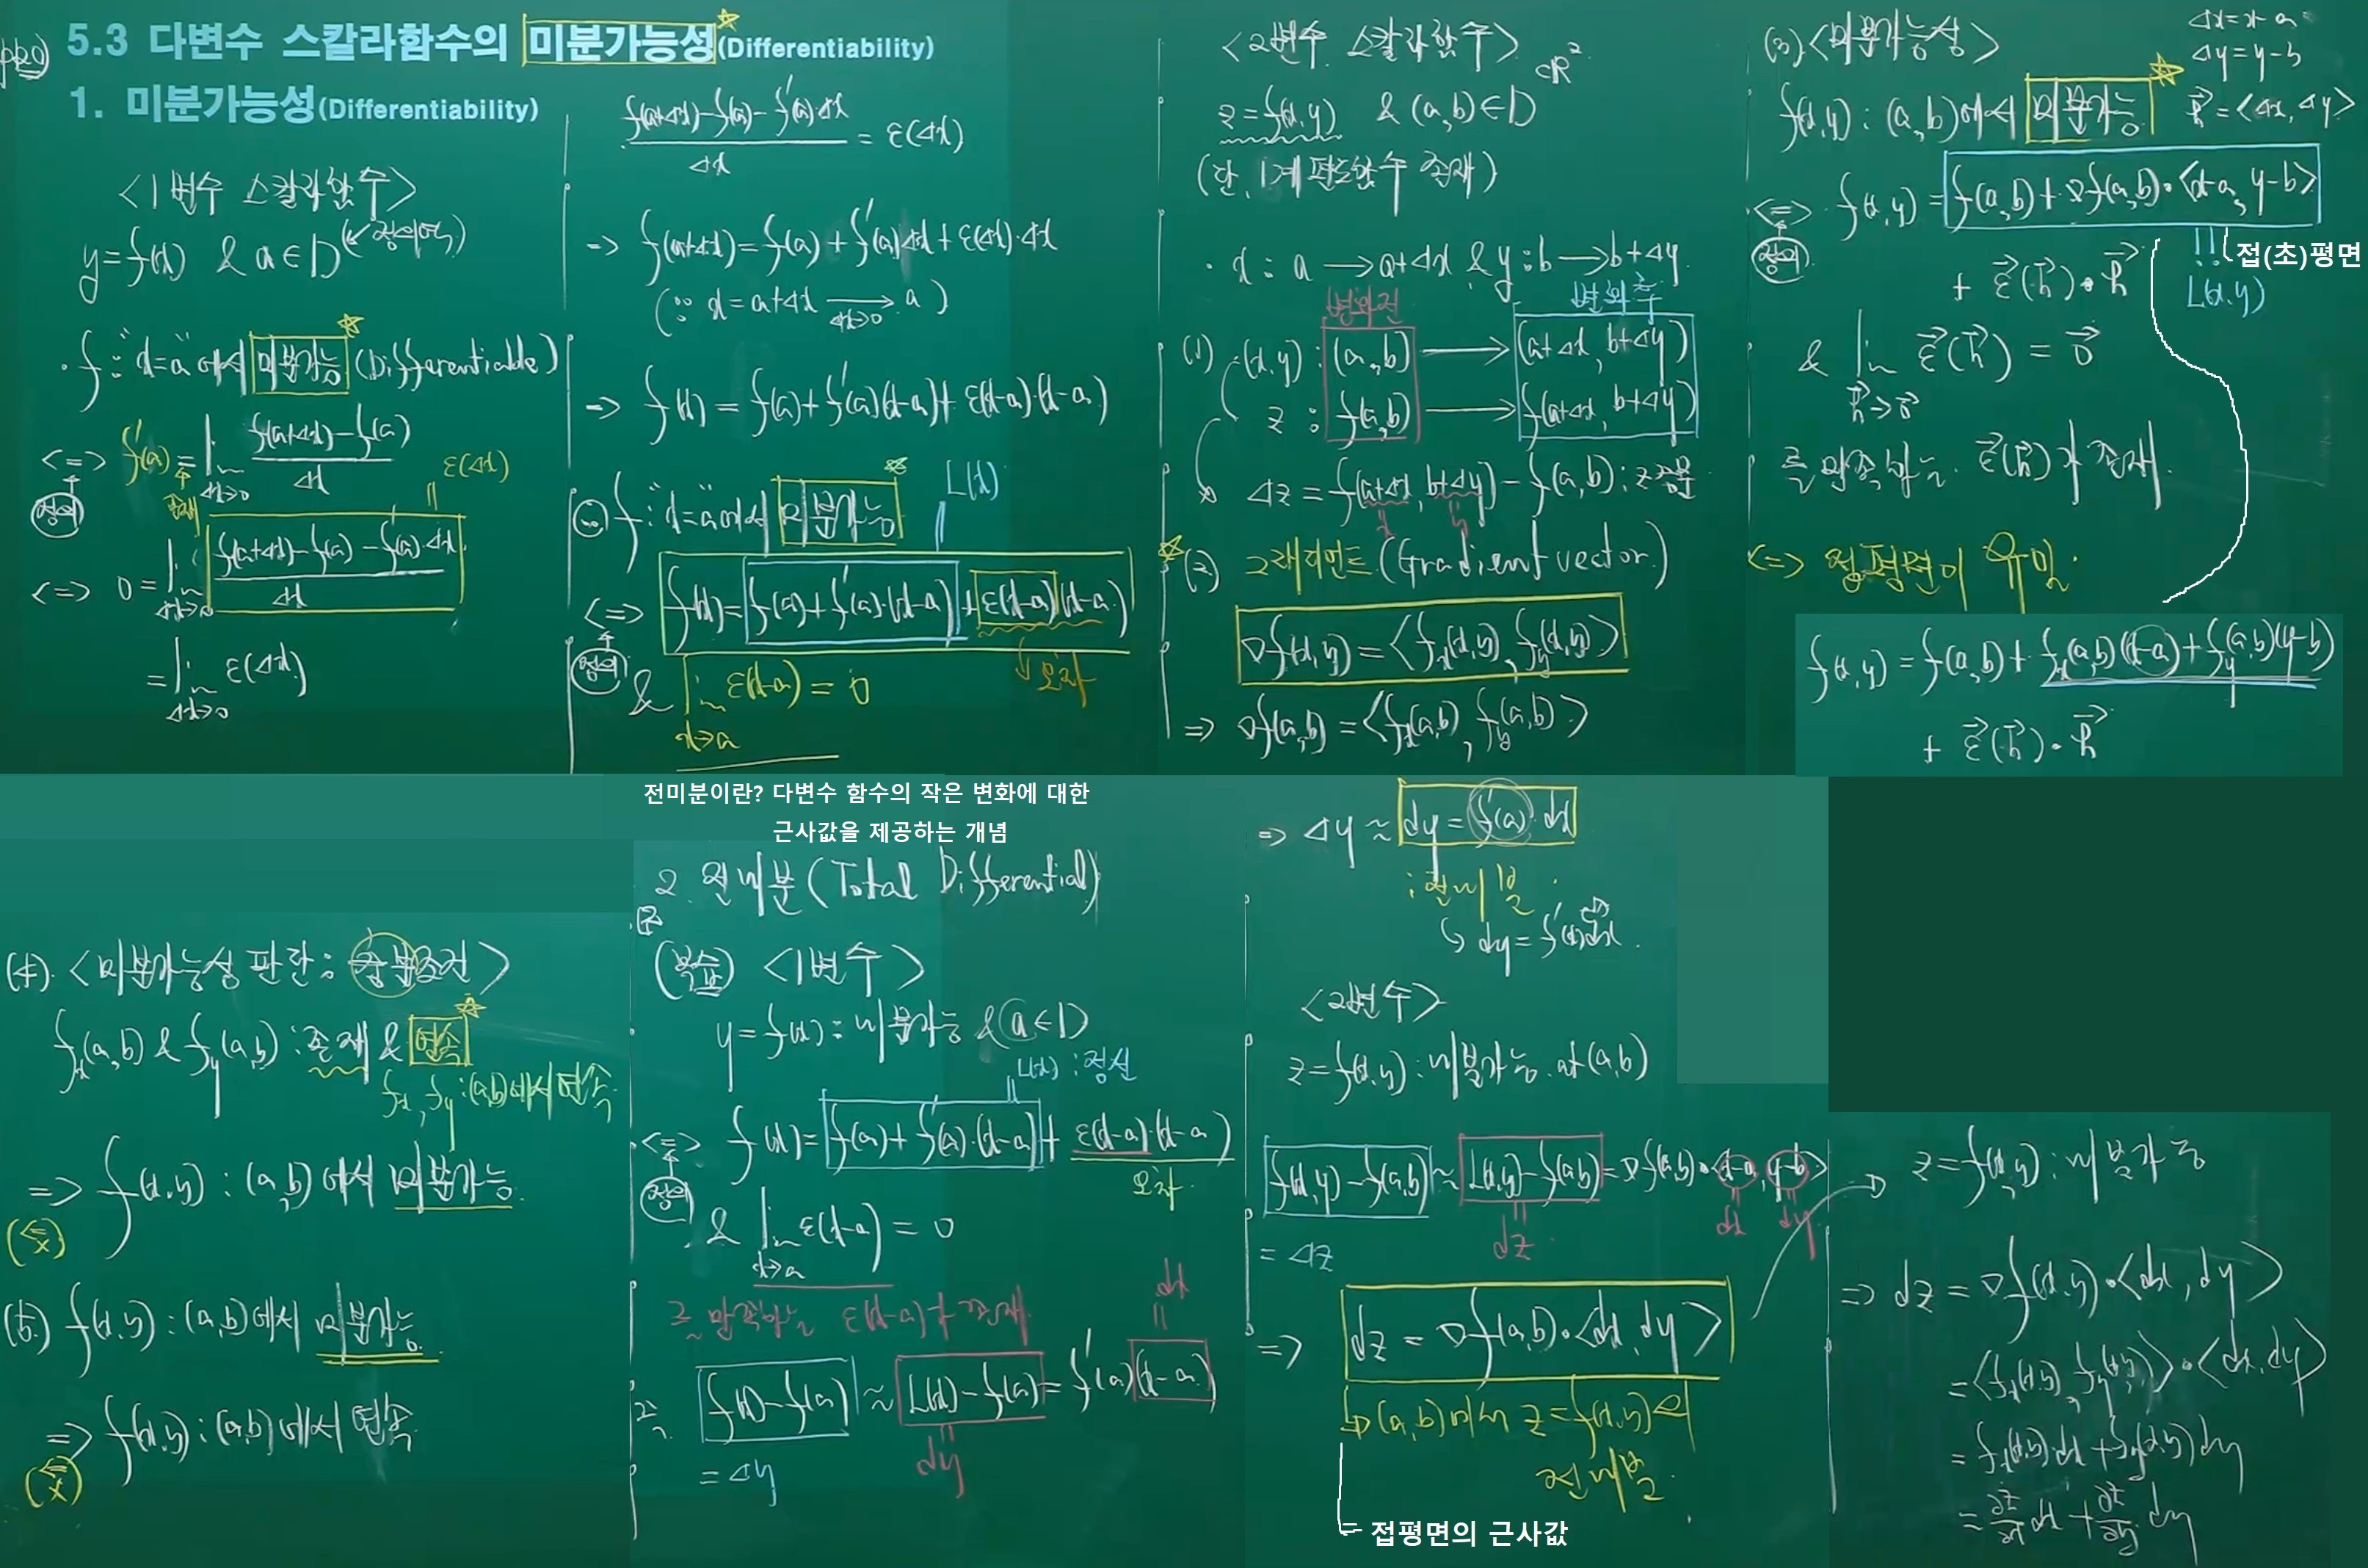 5.3 다변수 스칼라함수의 미분가능성(Differentiability)
1. 미분가능성(Differentiability)
<1변수 스칼라함수>
y=f(x) & a∈D (정의역)
· f : "x=a"에서 미분가능 (Differentiable)
<=> f'(a) = lim Δx→0 (f(a+Δx)-f(a))/Δx
정의
존재
ε(Δx)
<=> 0 = lim Δx→0 (f(a+Δx)-f(a)-f'(a)·Δx)/Δx
= lim Δx→0 ε(Δx)
(f(a+Δx)-f(a)-f'(a)·Δx)/Δx = ε(Δx)
=> f(a+Δx)=f(a)+f'(a)Δx+ε(Δx)·Δx
(∵ x=a+Δx →(Δx→0) a)
=> f(x) = f(a)+f'(a)(x-a)+ε(x-a)·(x-a)
∴ f : "x=a"에서 미분가능
L(x)
<=> f(x)=f(a)+f'(a)·(x-a)+ε(x-a)(x-a)
정의
오차
& lim x→a ε(x-a) = 0
<2변수 스칼라함수>
z=f(x,y) & (a,b)∈D ⊂R²
(단, 1계 편도함수 존재)
· x : a → a+Δx & y : b → b+Δy
변화전 변화후
(1) (x,y) : (a,b) → (a+Δx, b+Δy)
z : f(a,b) → f(a+Δx, b+Δy)
Δz = f(a+Δx, b+Δy) - f(a,b) : z증분
x y
(2) 그래디언트 (Gradient vector)
∇f(x,y) = <f_x(x,y), f_y(x,y)>
=> ∇f(a,b) = <f_x(a,b), f_y(a,b)>
(3) <미분가능성>
Δx=x-a
Δy=y-b
h⃗ = <Δx, Δy>
f(x,y) : (a,b)에서 미분가능
<=> f(x,y) = f(a,b)+∇f(a,b)·<x-a, y-b>
정의
접(초)평면
L(x,y)
+ ε⃗(h⃗)·h⃗
& lim h⃗→0⃗ ε⃗(h⃗) = 0⃗
를 만족하는 ε⃗(h⃗)가 존재
<=> 접평면이 유일.
f(x,y) = f(a,b)+f_x(a,b)(x-a)+f_y(a,b)(y-b)
+ ε⃗(h⃗)·h⃗
(4) <미분가능성 판단 : 충분조건>
f_x(a,b) & f_y(a,b) : 존재 & 연속
f_x, f_y : (a,b)에서 연속
=> f(x,y) : (a,b)에서 미분가능
(<= x)
(5) f(x,y) : (a,b)에서 미분가능
=> f(x,y) : (a,b)에서 연속
(<= x)
전미분이란? 다변수 함수의 작은 변화에 대한
근사값을 제공하는 개념
2. 전미분 (Total Differential)
(복습) <1변수>
y=f(x) : 미분가능 & a∈D
L(x) : 접선
<=> f(x)=f(a)+f'(a)·(x-a)+ε(x-a)·(x-a)
정의
오차
& lim x→a ε(x-a) = 0
를 만족하는 ε(x-a)가 존재
dx
즉. f(x)-f(a) ≈ L(x)-f(a) = f'(a)(x-a)
= Δy
dy
=> Δy ≈ dy = f'(a)·dx
: 전미분
↳ dy = f'(x)dx.
<2변수>
z=f(x,y) : 미분가능 at (a,b)
f(x,y)-f(a,b) ≈ L(x,y)-f(a,b) = ∇f(a,b)·<x-a, y-b>
dz dx dy
= Δz
=> dz = ∇f(a,b)·<dx, dy>
↳ (a,b)에서 z=f(x,y)의
전미분
= 접평면의 근사값
z=f(x,y) : 미분가능
=> dz = ∇f(x,y)·<dx, dy>
= <f_x(x,y), f_y(x,y)>·<dx, dy>
= f_x(x,y)dx + f_y(x,y)dy
= ∂z/∂x dx + ∂z/∂y dy